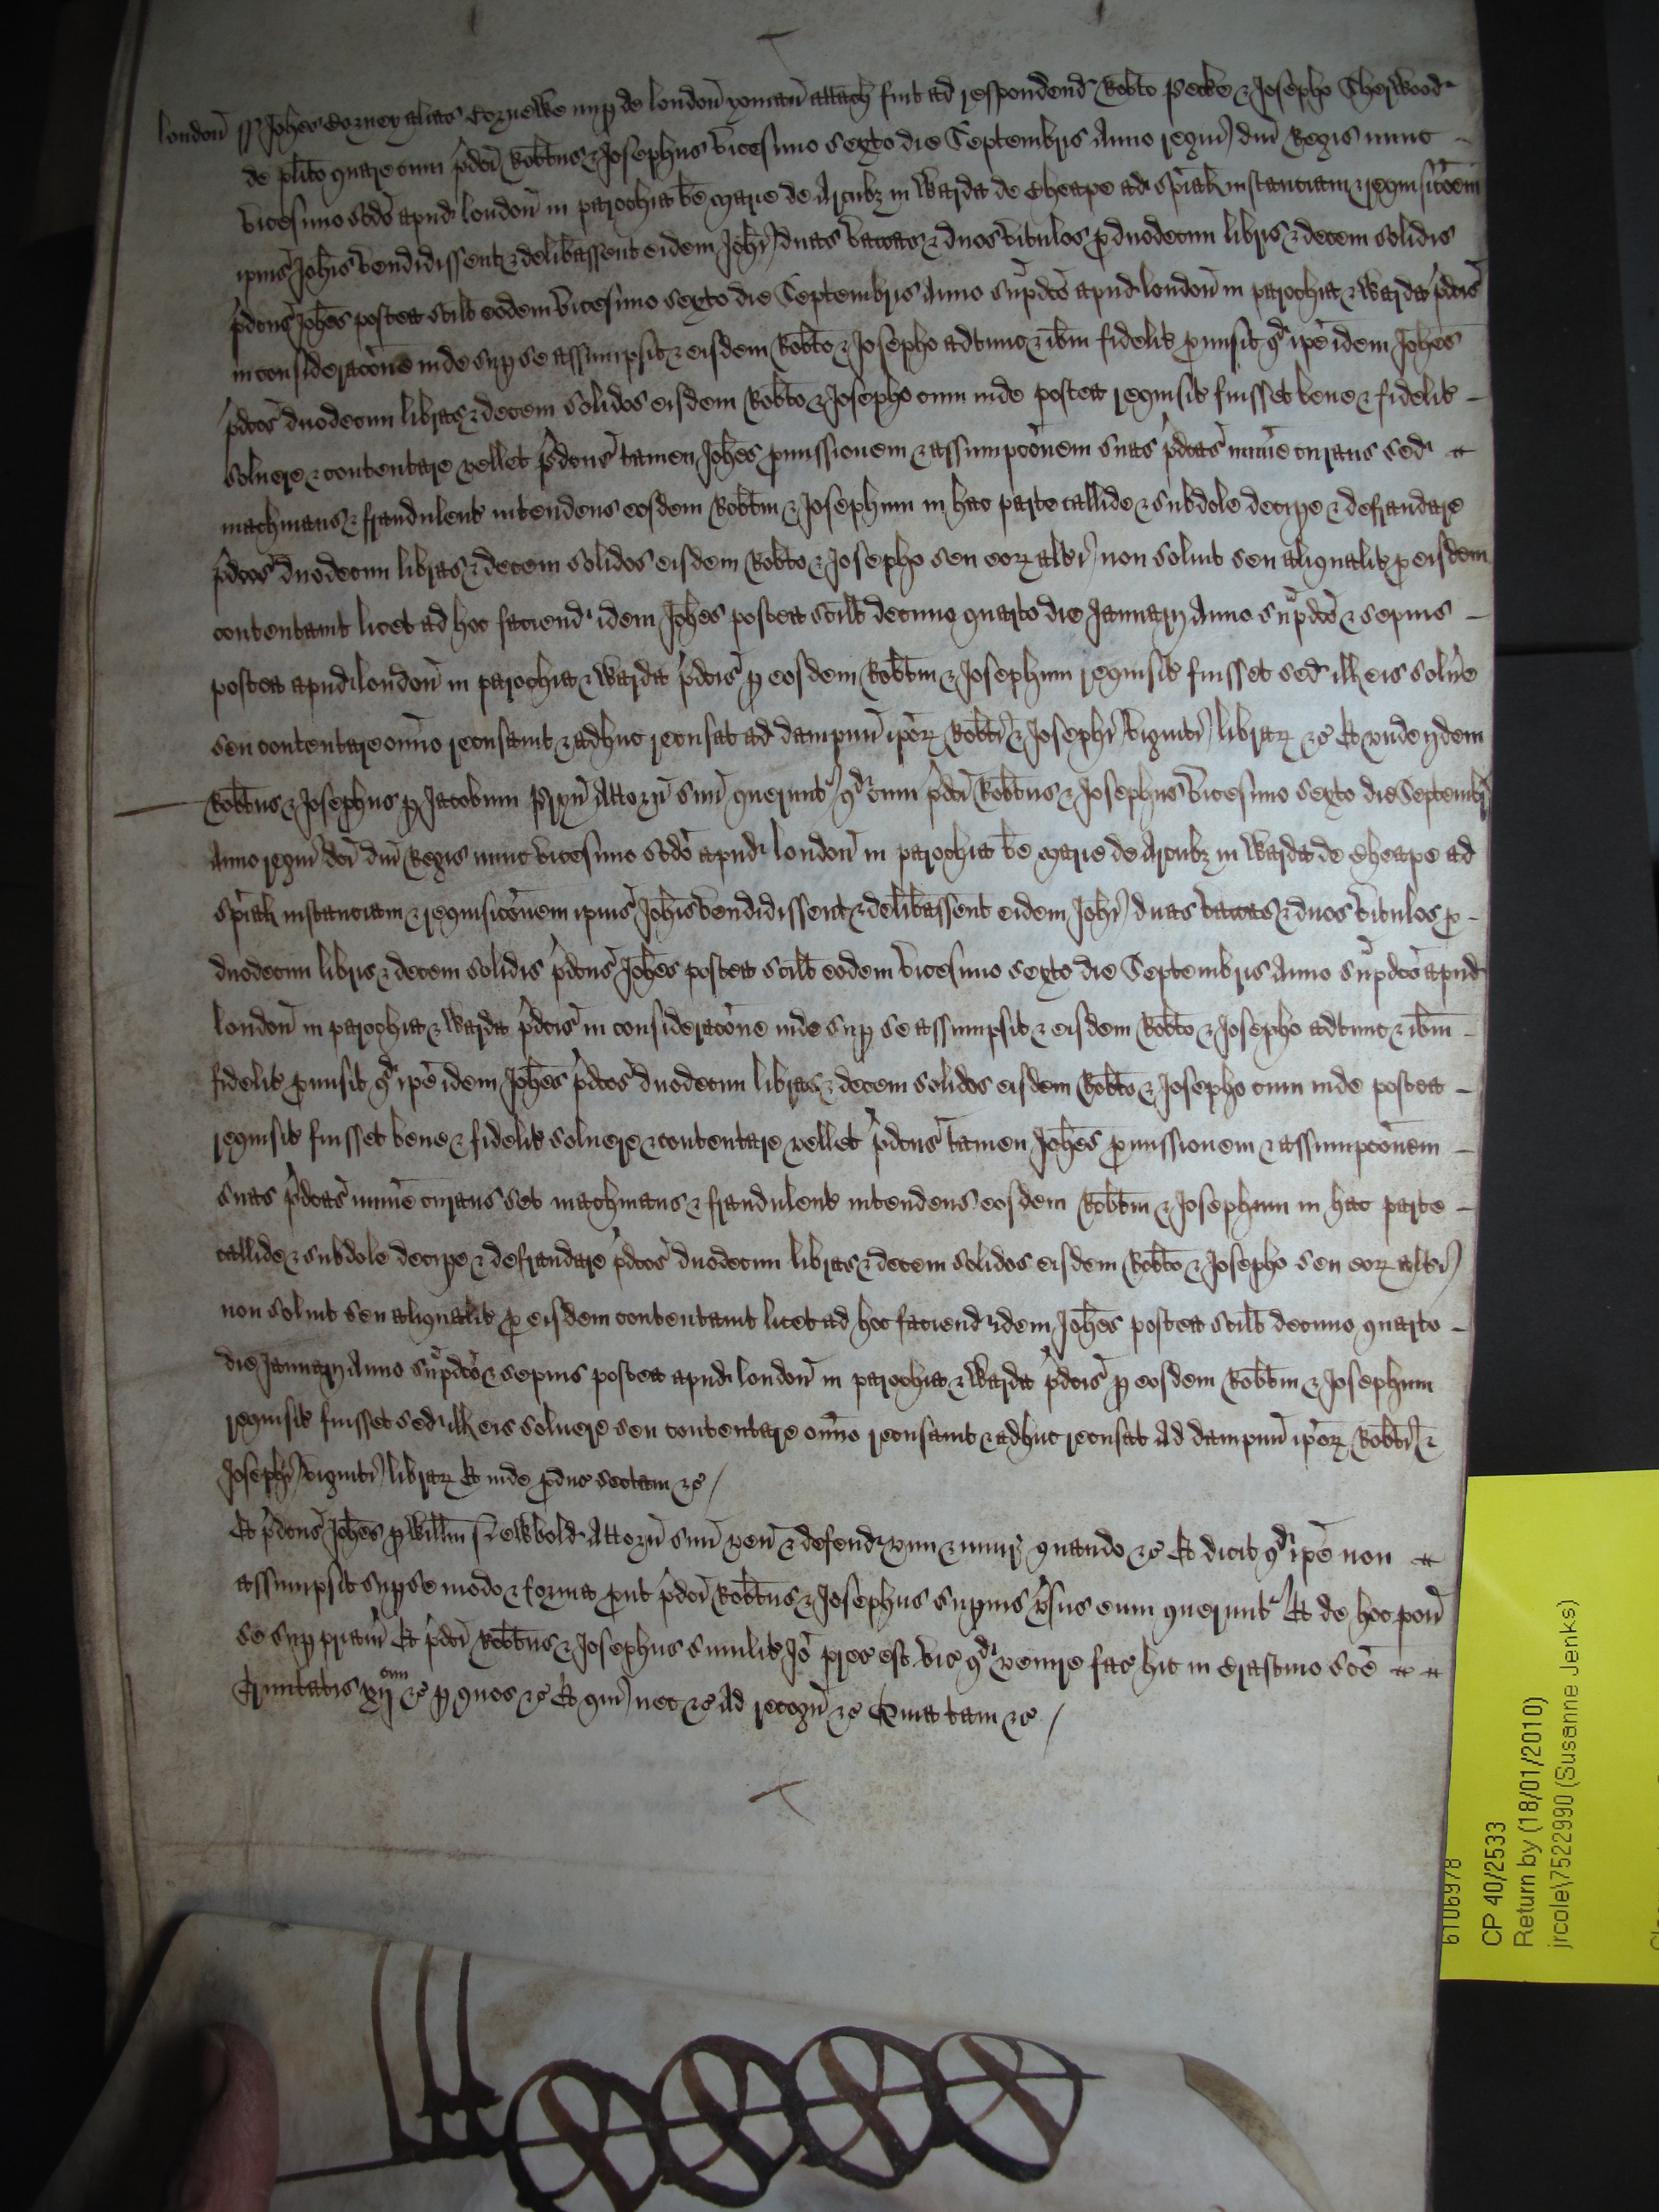 london ss Johes Corney alias Cornewe nup de london yoman attach fuit ad respondend Robto Pecke & Josepho Sherwood
de plito quare cum pdci Robtus & Josephus vicesimo sexto die Septembris Anno regni dni Regis nunc
vicesimo scdo apud london in parochia be marie de Arcubz in warda de Cheape ad spialem instanciam & requisicoem
ipius Johis vendidissent & delibassent eidem Johi duas vaccas & duos vitulos p duodecim libris & decem solidis
pdcus Johes postea scilt eodem vicesimo sexto die Septembris Anno supdco apud london in parochia & warda pdcis
in consideracone inde sup se assumpsit & eisdem Robto & Josepho adtunc & ibm fidelit pmisit qd ipe idem Johes
pdcos duodecim libras & decem solidos eisdem Robto & Josepho cum inde postea requisit fuisset bene & fidelit
soluere & contentare vellet pdcus tamen Johes pmissionem & assumpconem suas pdcas minie curans sed
machinans & fraudulent intendens eosdem Robtm & Josephum in hac parte callide & subdole decipe & defraudare
pdcos duodecim libras & decem solidos eisdem Robto & Josepho seu eor alti non soluit seu aliqualit p eisdem
contentauit licet ad hoc faciend idem Johes postea scilt decimo quarto die Januarij Anno supdco & sepius
postea apud london in parochia & warda pdcis p eosdem Robtm & Josephum requisit fuisset sed ill eis soluere
seu contentare omno recusauit & adhuc recusat ad dampnu ipor Robti & Josephi viginti librar &c Et unde ijdem
Robtus & Josephus p Jacobum Pryn Attorn suu querunt qd cum pdci Robtus & Josephus vicesimo sexto die Septembr
Anno regni dci dni Regis nunc vicesimo scdo apud london in parochia be marie de Arcubz in warda de Cheape ad
spialem instanciam & requisiconem ipius Johis vendidissent & delibassent eidem Johi duas vaccas & duos vitulos p
duodecim libris & decem solidis pdcus Johes postea scilt eodem vicesimo sexto die Septembris Anno supdco apud
london in parochia & warda pdcis in consideracone inde sup se assumpsit & eisdem Robto & Josepho adtunc & ibm
fidelit pmisit qd ipe idem Johes pdcos duodecim libras & decem solidos eisdem Robto & Josepho cum inde postea
requisit fuisset bene & fidelit soluere & contentare vellet pdcus tamen Johes pmissionem & assumpconem
suas pdcas minie curans set machinans & fraudulent intendens eosdem Robtm & Josephum in hac parte
callide & subdole decipe & defraudare pdcos duodecim libras & decem solidos eisdem Robto & Josepho seu eor alti
non soluit seu aliqualit p eisdem contentauit licet ad hoc faciend idem Johes postea scilt decimo quarto
die Januarij Anno supdco & sepius postea apud london in parochia & warda pdcis p eosdem Robtm & Josephum
requisit fuisset sed ill eis soluere seu contentare omno recusauit & adhuc recusat Ad dampnu ipor Robti &
Josephi viginti librar Et inde pduc sectam &c
Et pdcus Johes p Willm Newbold Attorn suu ven & defend vim & iniur quando &c Et dicit qd ipe non
assumpsit sup se modo & forma put pdci Robtus & Josephus supius vsus eum querunt Et de hoc pon
se sup priam Et pdci Robtus & Josephus similit Jo prec est vic qd venire fac hic in Crastino sce
Trinitatis xij cim &c p quos &c Et qui nec &c Ad recogn &c Quia tam &c
6106978
CP 40/2533
Return by (18/01/2010)
jrcole\7522990 (Susanne Jenks)